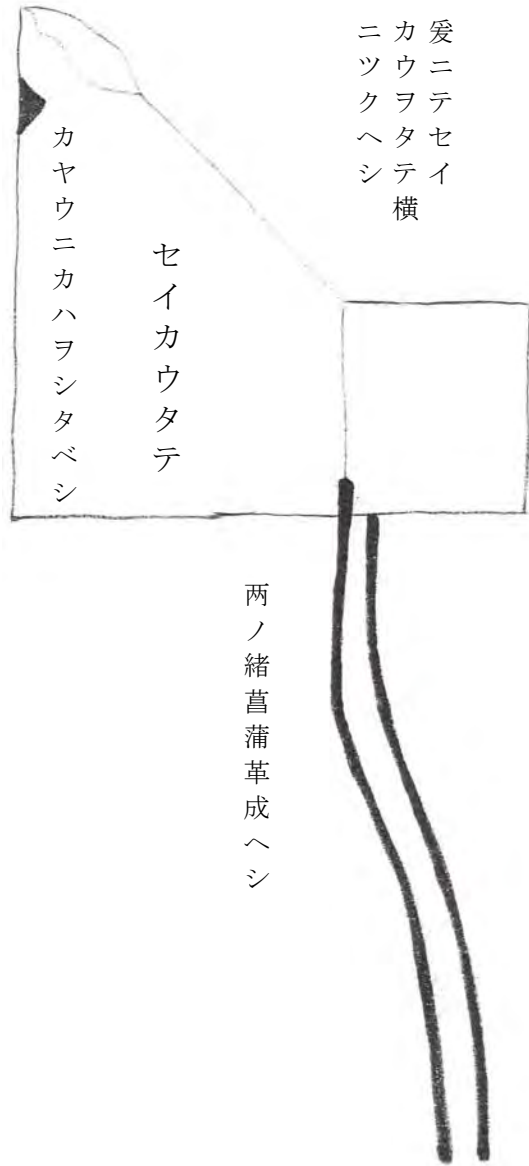 爰ニテセイ
カウヲタテ横
ニツクヘシ
セイカウタテ
カヤウニカハヲシタベシ
両ノ緒菖蒲革成ヘシ